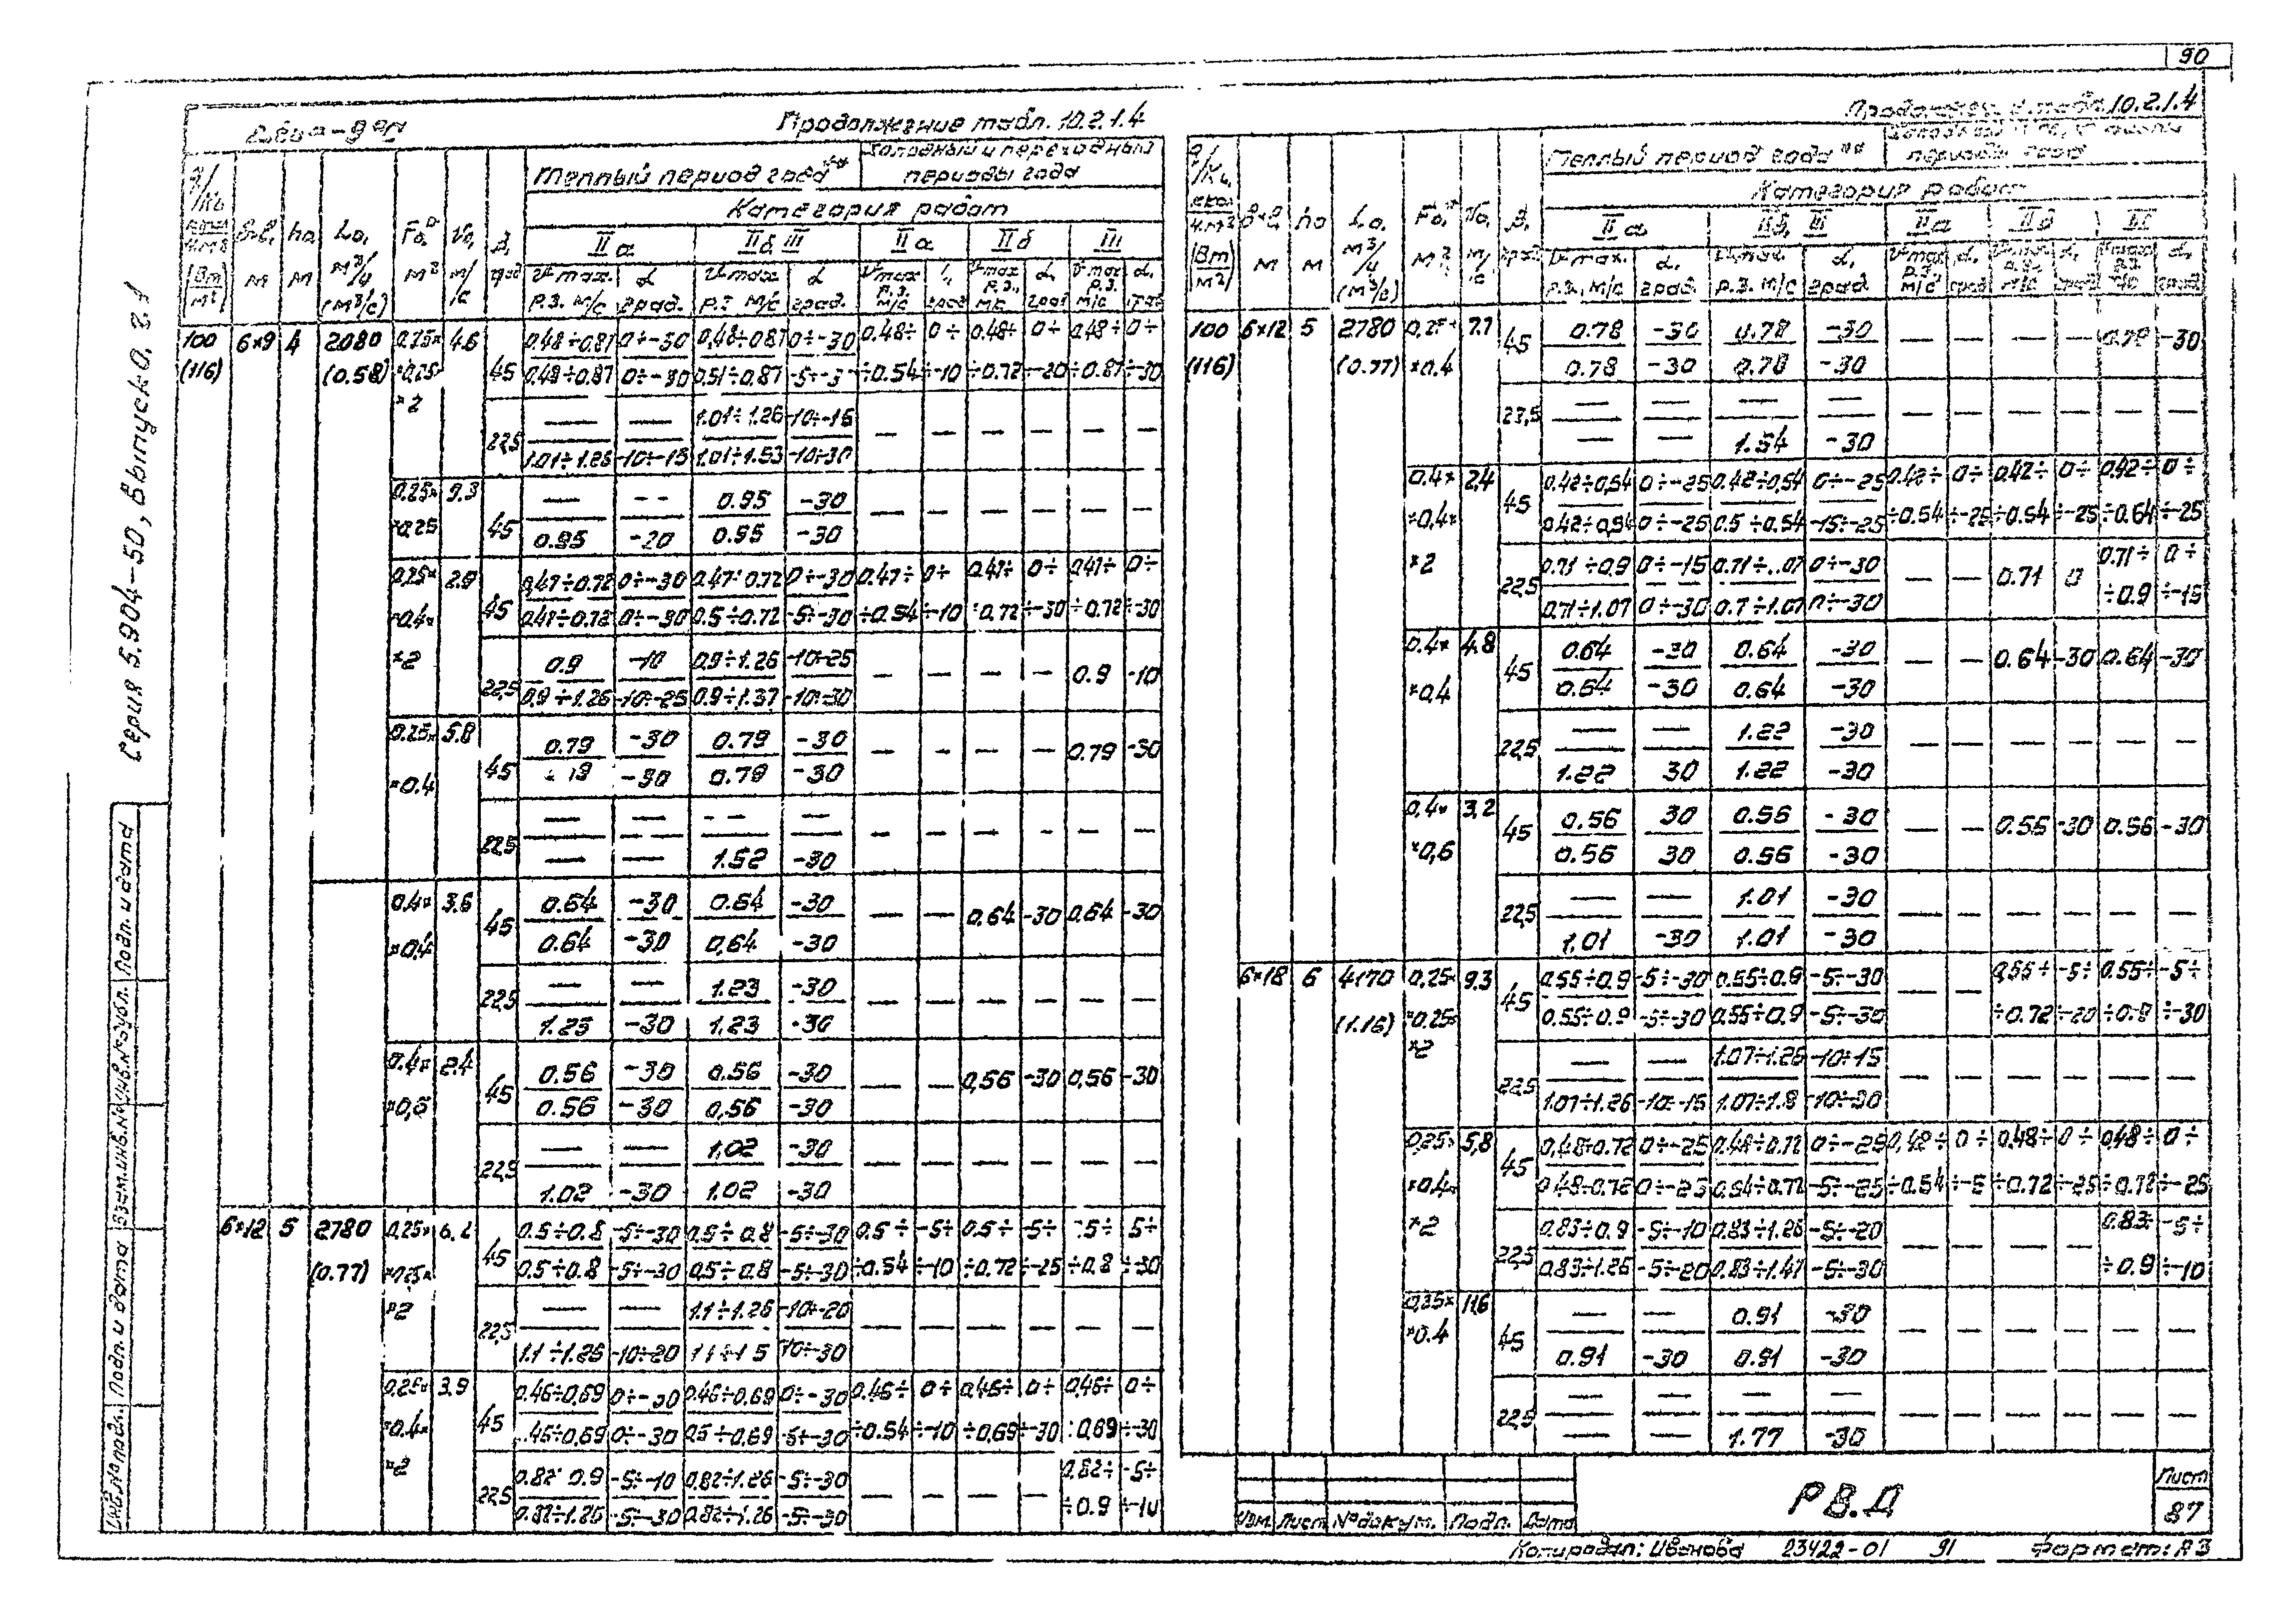 90
Серия 5.904-50, Выпуск 0.2.1
Продолжение табл. 10.2.1.4
Теплый период года**
Холодный и переходный
периоды года
Категория работ
IIа IIб III IIа IIб III
100 6×9 4 2080 0.25× 4.6
(116) (0.58) ×0.25×
×2
45 0.48÷0.87 0÷-30 0.48÷0.87 0÷-30 0.48÷ 0÷ 0.48÷ 0÷ 0.48÷ 0÷
0.48÷0.87 0÷-30 0.51÷0.87 ÷0.54 ÷-10 ÷0.72 ÷-20 ÷0.87 ÷-30
22,5 — — 1.01÷1.26 -10÷-15 — — — — — —
1.01÷1.26 -10÷-15 1.01÷1.53 -10÷-30
0.25× 9.3
×0.25
45 — — 0.95 -30 — — — — — —
0.95 -20 0.95 -30
0.25× 2.9
×0.4×
×2
45 0.47÷0.72 0÷-30 0.47÷0.72 0÷-30 0.47÷ 0÷ 0.47÷ 0÷ 0.47÷ 0÷
0.47÷0.72 0÷-30 0.5÷0.72 -5÷-30 ÷0.54 ÷-10 ÷0.72 ÷-30 ÷0.72 ÷-30
22,5 0.9 -10 0.9÷1.26 -10÷-25 — — — — 0.9 -10
0.9÷1.26 -10÷-25 0.9÷1.37 -10÷-30
0.25× 5.8
×0.4
45 0.79 -30 0.79 -30 — — — — 0.79 -30
-30 0.79 -30
22,5 — — — — — — — — — —
— — 1.52 -30
0.4× 3.6
×0.4
45 0.64 -30 0.64 -30 — — 0.64 -30 0.64 -30
0.64 -30 0.64 -30
22,5 — — 1.23 -30 — — — — — —
1.23 -30 1.23 -30
0.4× 2.4
×0.6
45 0.56 -30 0.56 -30 — — 0.56 -30 0.56 -30
0.56 -30 0.56 -30
22,5 — — 1.02 -30 — — — — — —
1.02 -30 1.02 -30
6×12 5 2780 0.25× 6.2
(0.77) ×0.25×
×2
45 0.5÷0.8 -5÷-30 0.5÷0.8 -5÷-30 0.5÷ -5÷ 0.5÷ -5÷
0.5÷0.8 -5÷-30 0.5÷0.8 -5÷-30 ÷0.54 ÷-10 ÷0.72 ÷-25 ÷0.8 ÷-30
22,5 — — 1.1÷1.26 -10÷-20 — — — — — —
1.1÷1.26 -10÷-20 -10÷-30
0.25× 3.9
×0.4×
×2
45 0.46÷0.69 0÷-30 0.46÷0.69 0÷-30 0.46÷ 0÷ 0.46÷ 0÷ 0.46÷ 0÷
0÷-30 0.5÷0.69 -5÷-30 ÷0.54 ÷-10 ÷0.69 ÷-30 ÷0.69 ÷-30
22,5 0.82÷0.9 -5÷-10 0.82÷1.26 -5÷-30 — — — — 0.82÷ -5÷
0.82÷1.26 -5÷-30 0.82÷1.26 -5÷-30 ÷0.9 ÷-10
табл. 10.2.1.4
Теплый период года**
периоды года
Категория работ
IIа IIб, III IIа IIб III
100 6×12 5 2780 0.25× 7.7
(116) (0.77) ×0.4
45 0.78 -30 0.78 -30 — — — — 0.78 -30
0.78 -30 0.78 -30
— — — — — — — — — —
— — 1.54 -30
0.4× 2.4
×0.4×
×2
45 0.42÷0.54 0÷-25 0.42÷0.54 0÷-25 0.42÷ 0÷ 0.42÷ 0÷ 0.42÷ 0÷
0.42÷0.54 0÷-25 0.5÷0.54 -15÷-25 ÷0.54 ÷-25 ÷0.54 ÷-25 ÷-25
22,5 0.71÷0.9 0÷-15 0÷-30 — — 0.71 0 0.71÷ 0÷
0.71÷1.07 0÷-30 0.7÷1.07 0÷-30 ÷0.9 ÷-15
0.4× 4.8
×0.4
45 0.64 -30 0.64 -30 — — 0.64 -30 0.64 -30
0.64 -30 0.64 -30
22,5 — — 1.22 -30 — — — — — —
1.22 30 1.22 -30
0.4× 3.2
×0.6
45 0.56 30 0.56 -30 — — 0.56 -30 0.56 -30
0.56 30 0.56 -30
22,5 — — 1.01 -30 — — — — — —
1.01 -30 1.01 -30
6×18 6 4170 0.25× 9.3
(1.16) ×0.25×
×2
45 0.55÷0.9 -5÷-30 0.55÷0.9 -5÷-30 — — 0.55÷ -5÷ 0.55÷ -5÷
0.55÷0.9 -5÷-30 0.55÷0.9 -5÷-30 ÷0.72 ÷-20 ÷-30
22,5 — — 1.07÷1.26 -10÷15 — — — — — —
1.07÷1.26 -10÷-15 1.07÷1.8 -10÷-30
0.25× 5.8
×0.4×
×2
45 0.48÷0.72 0÷-25 0.48÷0.72 0÷-25 0.48÷ 0÷ 0.48÷ 0÷ 0.48÷ 0÷
0.48÷0.72 0÷-25 0.54÷0.72 -5÷-25 ÷0.54 ÷-5 ÷0.72 ÷-25 ÷0.72 ÷-25
22,5 0.83÷0.9 -5÷-10 0.83÷1.26 -5÷-20 — — — — 0.83÷ -5÷
0.83÷1.26 -5÷-20 0.83÷1.47 -5÷-30 ÷0.9 ÷-10
0.25× 11.6
×0.4
45 — — 0.91 -30 — — — — — —
0.91 -30 0.91 -30
22,5 — — — — — — — — — —
— — 1.77 -30
Изм. Лист № докум. Подп. Дата
РВ.Д
Лист
87
Копировал: Иванова 23422-01 91 Формат: А3
Инв. № подл. Подп. и дата Взам. инв. № Инв. № дубл. Подп. и дата